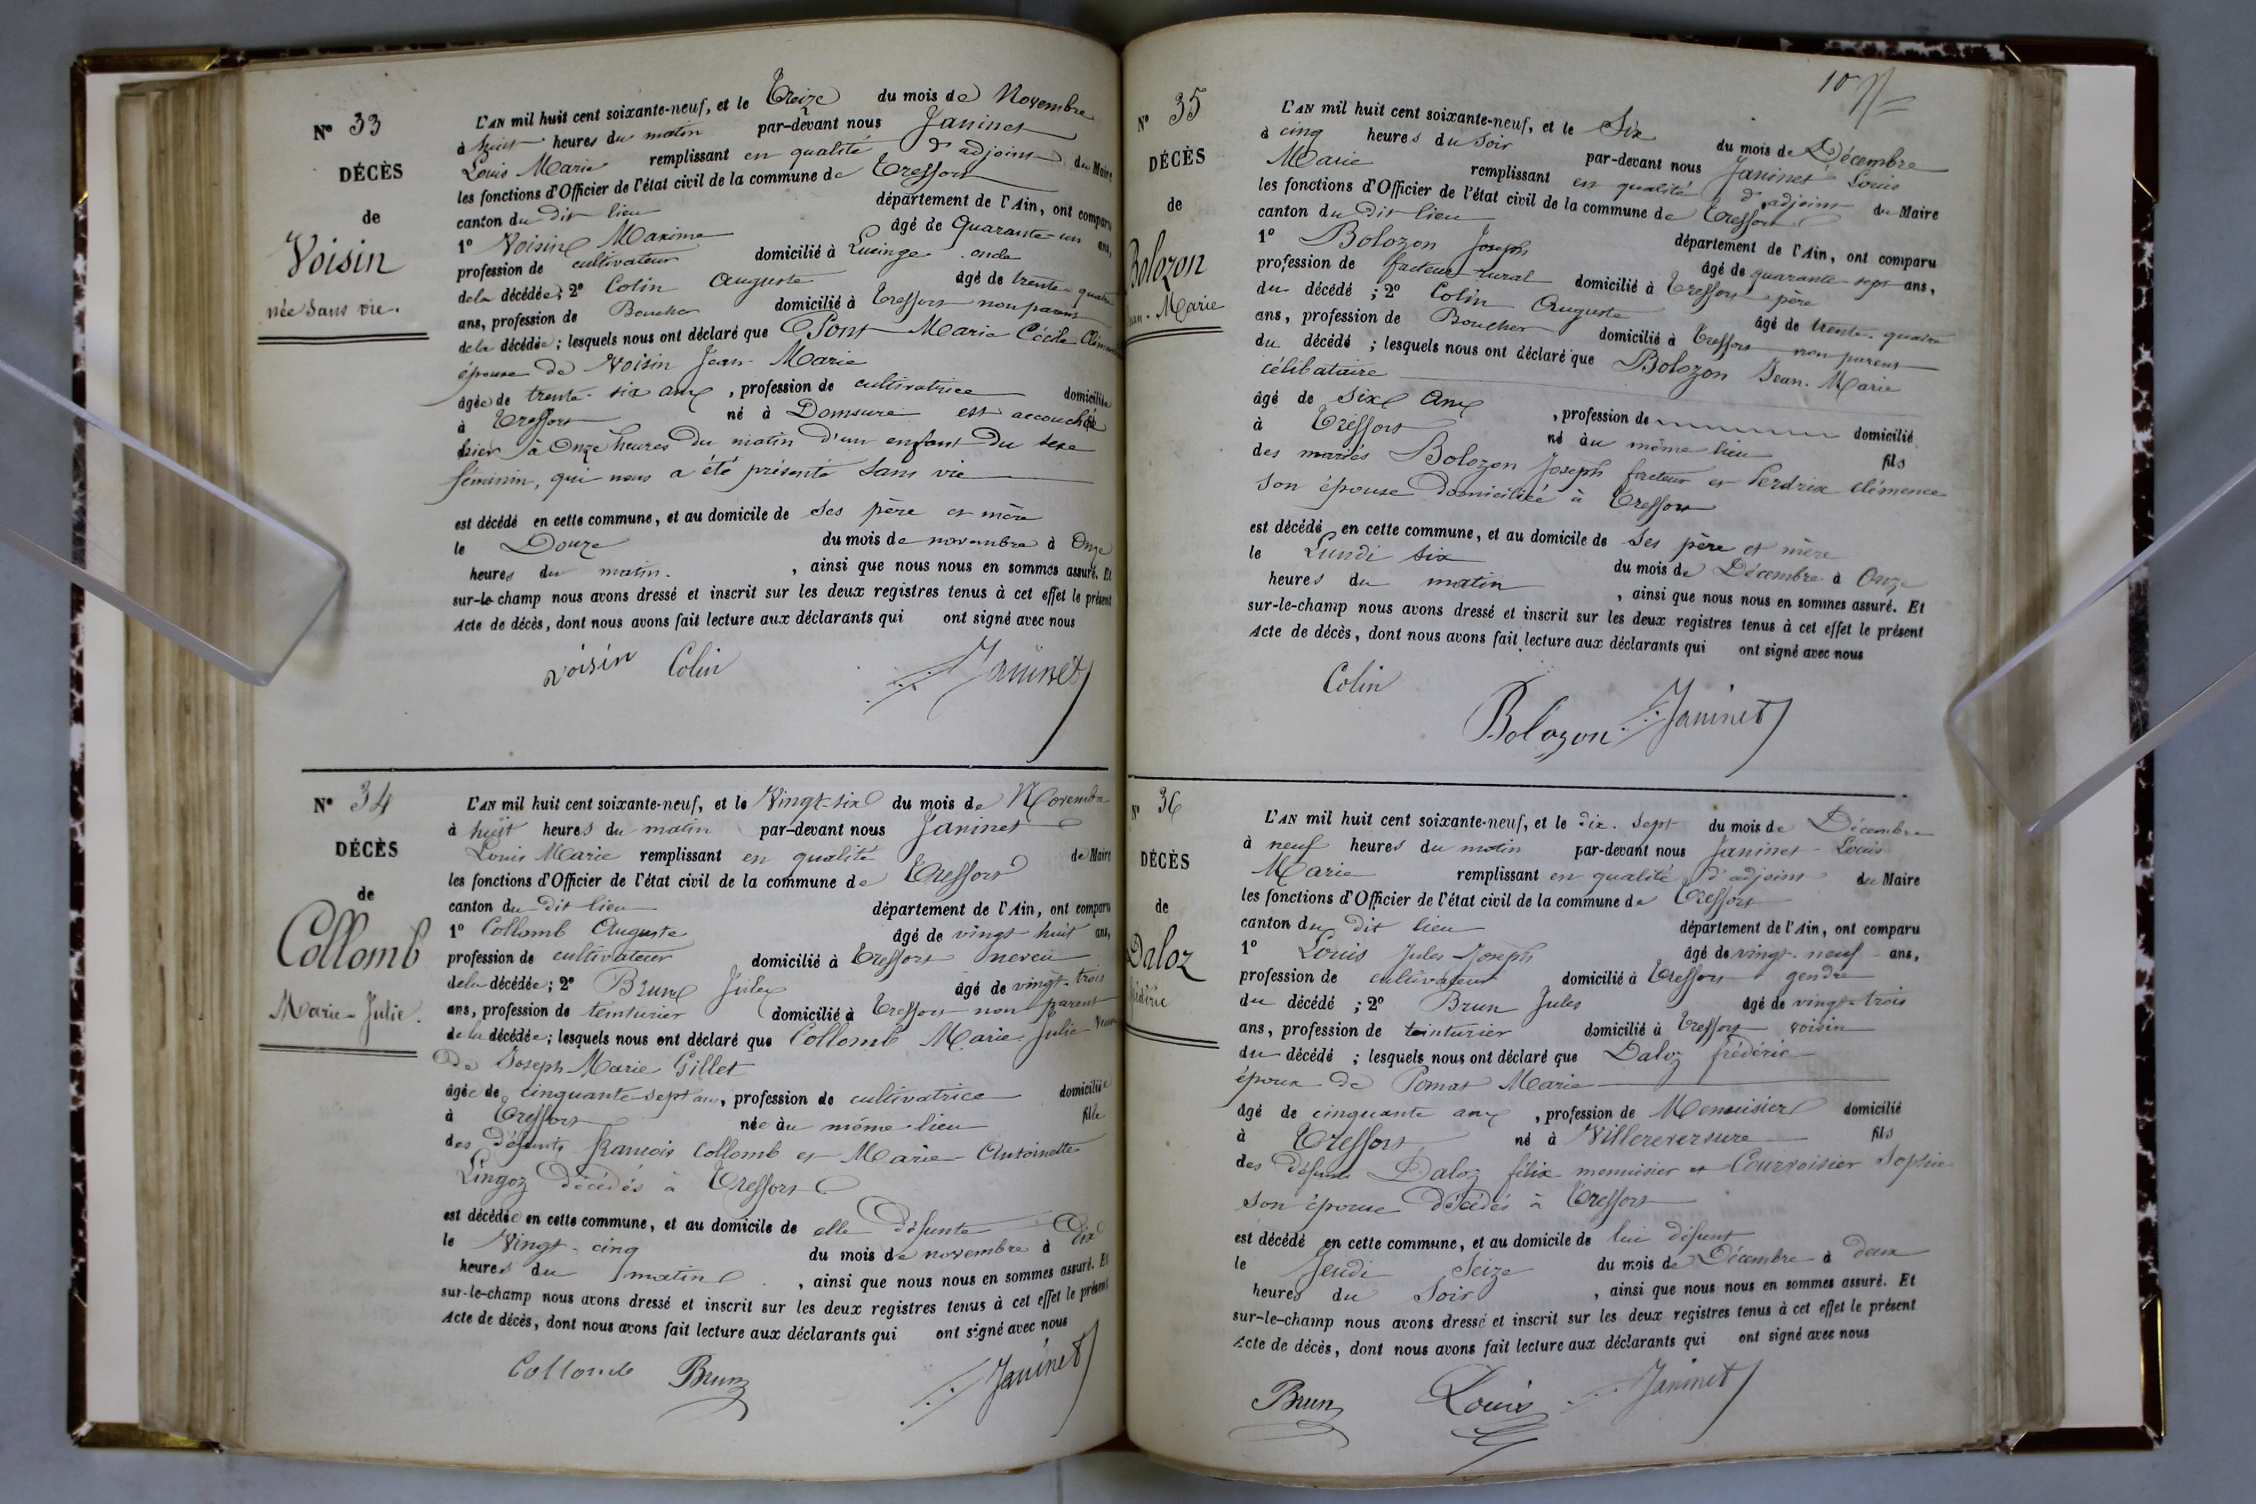 N° 33
DÉCÈS
de
Voisin
née sans vie.
L'AN mil huit cent soixante-neuf, et le Treize du mois de Novembre
à huit heures du matin par-devant nous Janinet
Louis Marie remplissant en qualité d'adjoint du Maire
les fonctions d'Officier de l'état civil de la commune de Treffort
canton du dit lieu département de l'Ain, ont comparu
1° Voisin Maxime âgé de Quarante-un ans,
profession de cultivateur domicilié à Lucinge oncle
de la décédée; 2° Colin Auguste âgé de trente-quatre
ans, profession de Boucher domicilié à Treffort non parent
de la décédée; lesquels nous ont déclaré que Pont Marie Cécile
épouse de Voisin Jean-Marie
âgée de trente-six ans, profession de cultivatrice domiciliée
à Treffort né à Domsure est accouchée
hier à Onze heures du matin d'un enfant du sexe
féminin, qui nous a été présenté sans vie
est décédé en cette commune, et au domicile de ses père et mère
le Douze du mois de novembre à Onze
heures du matin. , ainsi que nous nous en sommes assuré. Et
sur-le-champ nous avons dressé et inscrit sur les deux registres tenus à cet effet le présent
Acte de décès, dont nous avons fait lecture aux déclarants qui ont signé avec nous
Voisin Colin Janinet
N° 34
DÉCÈS
de
Collomb
Marie-Julie.
L'AN mil huit cent soixante-neuf, et le Vingt-six du mois de Novembre
à huit heures du matin par-devant nous Janinet
Louis Marie remplissant en qualité de Maire
les fonctions d'Officier de l'état civil de la commune de Treffort
canton du dit lieu département de l'Ain, ont comparu
1° Collomb Auguste âgé de vingt-huit ans,
profession de cultivateur domicilié à Treffort neveu
de la décédée; 2° Brun Jules âgé de vingt-trois
ans, profession de teinturier domicilié à Treffort non parent
de la décédée; lesquels nous ont déclaré que Collomb Marie-Julie Veuve
de Joseph Marie Gillet
âgée de cinquante-sept ans, profession de cultivatrice domiciliée
à Treffort née au même lieu fille
des défunts françois Collomb et Marie-Antoinette
Lingoz décédés à Treffort
est décédée en cette commune, et au domicile de elle défunte
le Vingt-cinq du mois de novembre à Dix
heures du matin , ainsi que nous nous en sommes assuré. Et
sur-le-champ nous avons dressé et inscrit sur les deux registres tenus à cet effet le présent
Acte de décès, dont nous avons fait lecture aux déclarants qui ont signé avec nous
Collomb Brun Janinet
10
N° 35
DÉCÈS
de
Bolozon
Jean-Marie
L'AN mil huit cent soixante-neuf, et le Six du mois de Décembre
à cinq heures du soir par-devant nous Janinet Louis
Marie remplissant en qualité d'adjoint du Maire
les fonctions d'Officier de l'état civil de la commune de Treffort
canton du dit lieu département de l'Ain, ont comparu
1° Bolozon Joseph âgé de quarante-sept ans,
profession de facteur rural domicilié à Treffort père
du décédé ; 2° Colin Auguste âgé de trente-quatre
ans, profession de Boucher domicilié à Treffort non parent
du décédé ; lesquels nous ont déclaré que Bolozon Jean-Marie
célibataire
âgé de six ans , profession de domicilié
à Treffort né au même lieu fils
des mariés Bolozon Joseph facteur et Perdrix Clémence
son épouse domiciliés à Treffort
est décédé en cette commune, et au domicile de ses père et mère
le Lundi six du mois de Décembre à Onze
heures du matin , ainsi que nous nous en sommes assuré. Et
sur-le-champ nous avons dressé et inscrit sur les deux registres tenus à cet effet le présent
Acte de décès, dont nous avons fait lecture aux déclarants qui ont signé avec nous
Colin Bolozon Janinet
N° 36
DÉCÈS
de
Daloz
frédéric
L'AN mil huit cent soixante-neuf, et le dix-sept du mois de Décembre
à neuf heures du matin par-devant nous Janinet-Louis
Marie remplissant en qualité d'adjoint du Maire
les fonctions d'Officier de l'état civil de la commune de Treffort
canton du dit lieu département de l'Ain, ont comparu
1° Louis Jules Joseph âgé de vingt-neuf ans,
profession de cultivateur domicilié à Treffort gendre
du décédé ; 2° Brun Jules âgé de vingt-trois
ans, profession de teinturier domicilié à Treffort voisin
du décédé ; lesquels nous ont déclaré que Daloz frédéric
époux de Pomat Marie
âgé de cinquante ans , profession de Menuisier domicilié
à Treffort né à Villereversure fils
des défunts Daloz félix menuisier et Courvoisier Sophie
son épouse décédés à Treffort
est décédé en cette commune, et au domicile de lui défunt
le Jeudi Seize du mois de Décembre à deux
heures du soir , ainsi que nous nous en sommes assuré. Et
sur-le-champ nous avons dressé et inscrit sur les deux registres tenus à cet effet le présent
Acte de décès, dont nous avons fait lecture aux déclarants qui ont signé avec nous
Brun Louis Janinet